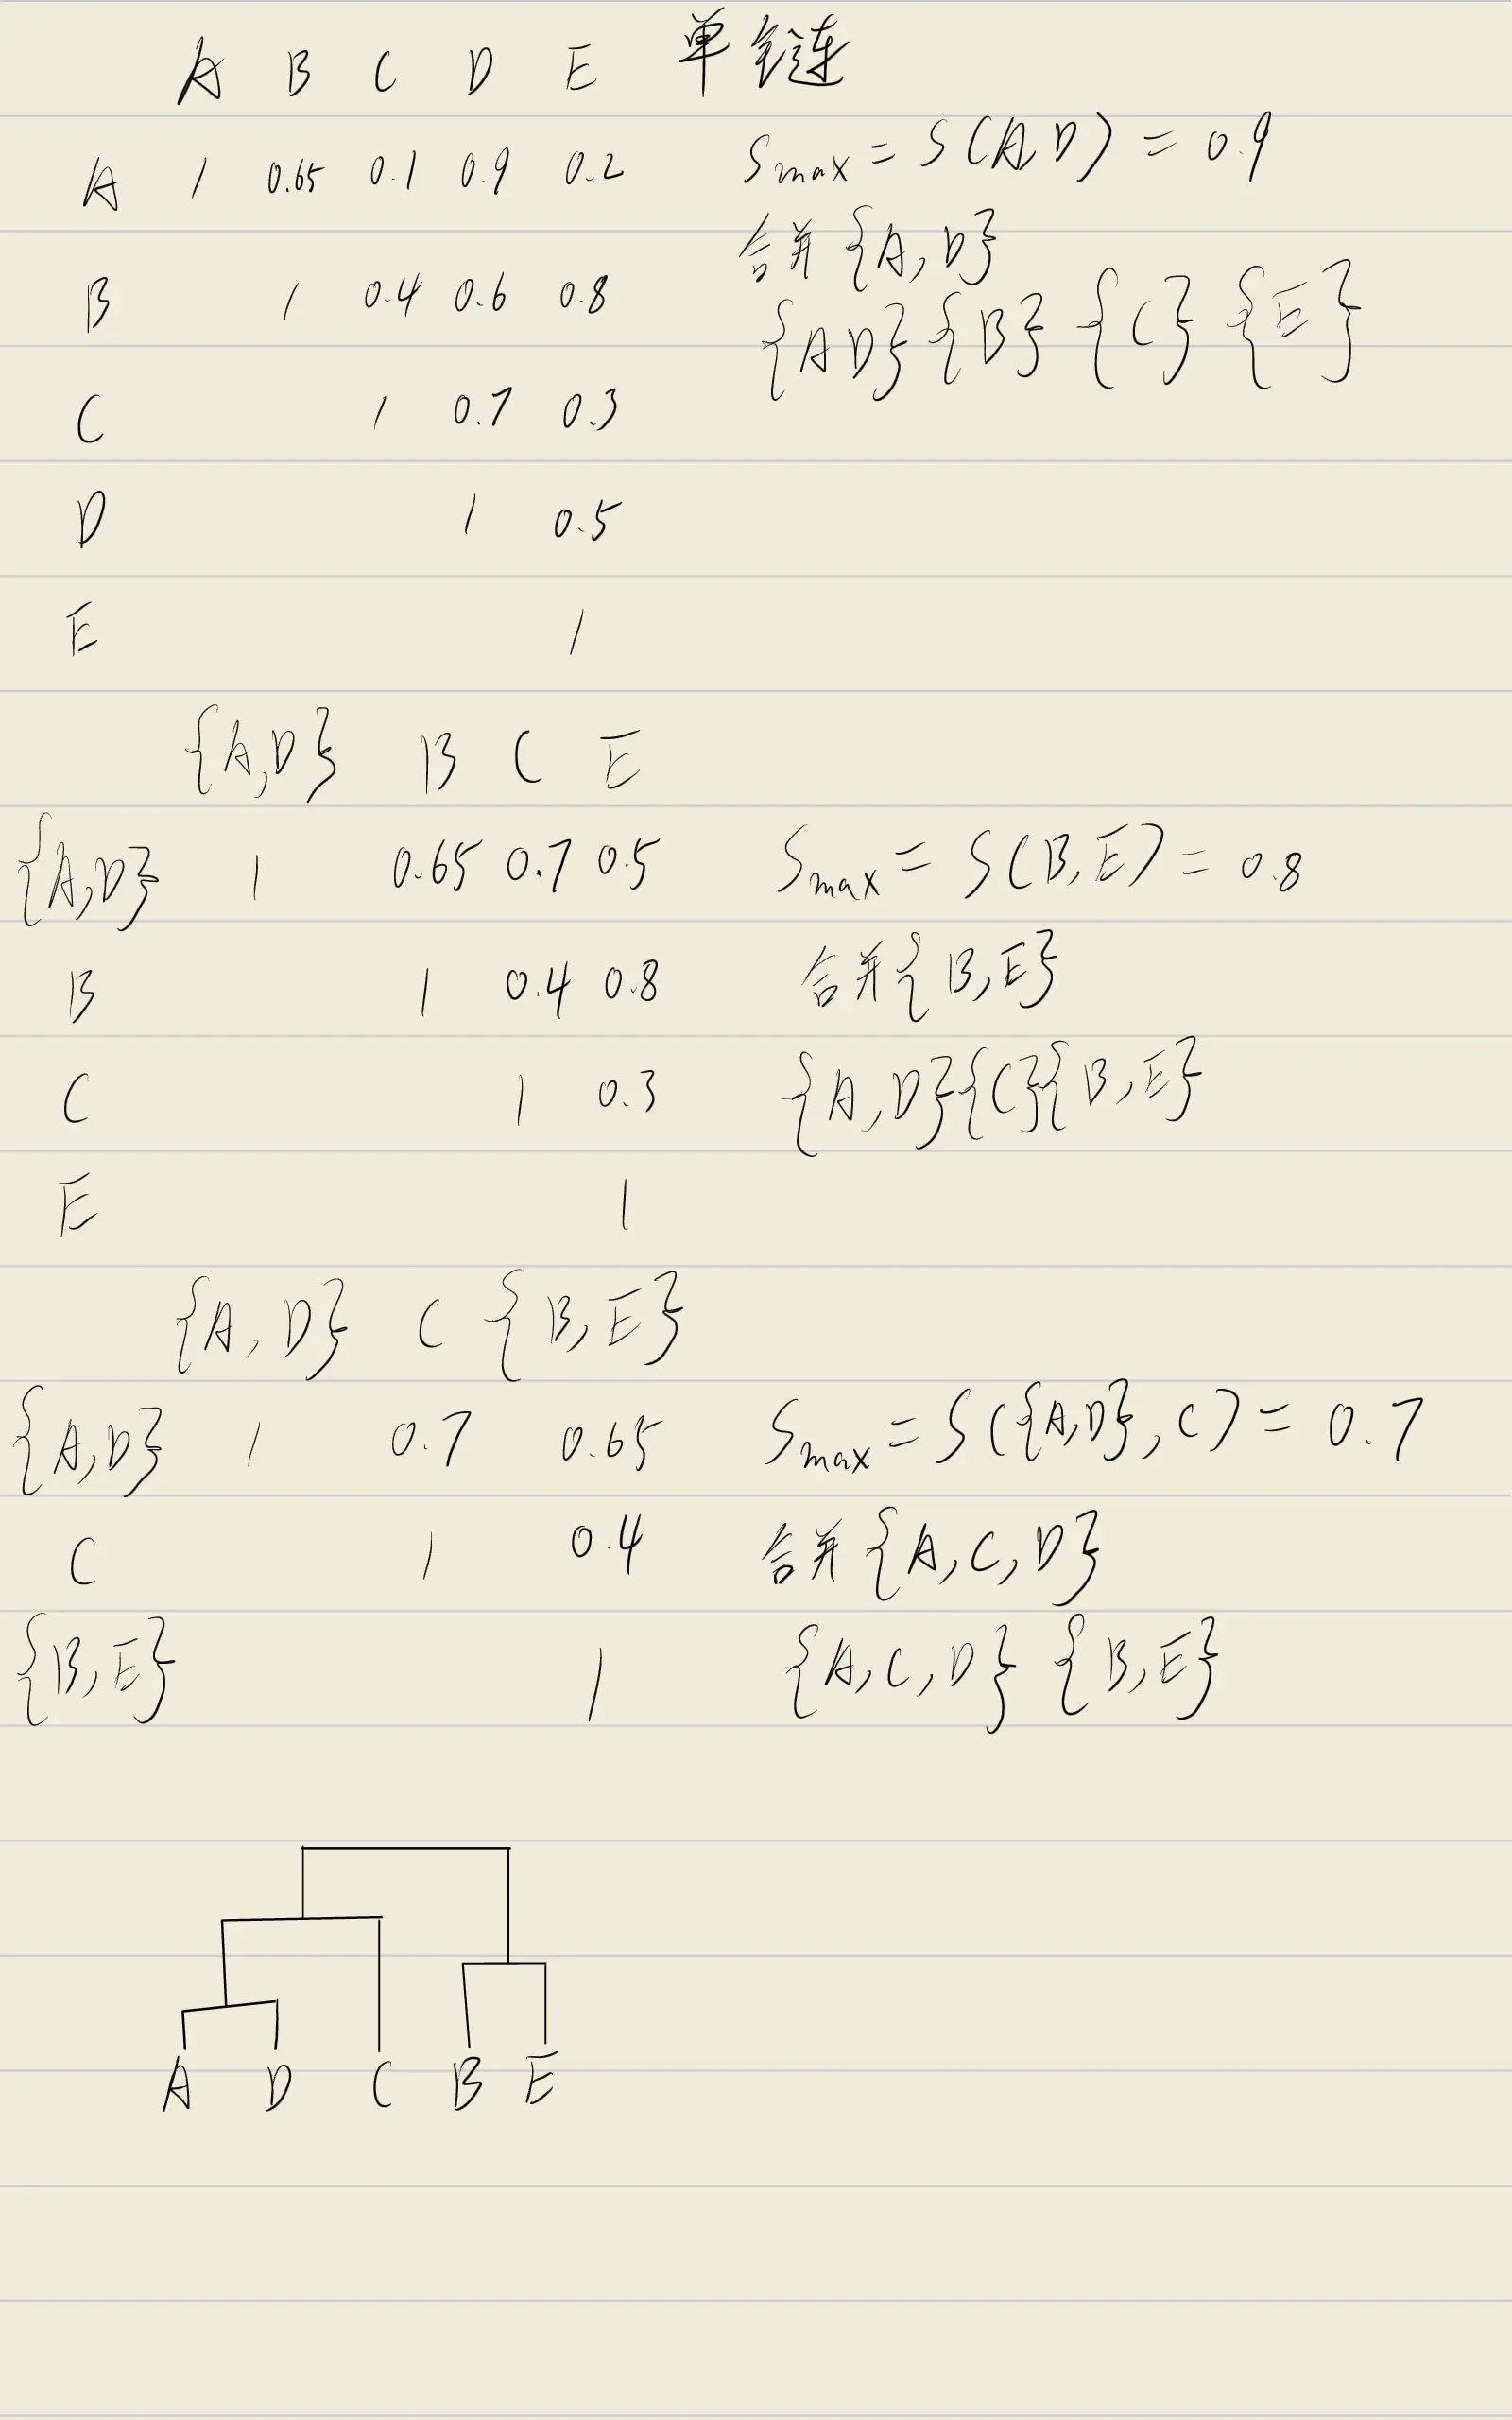 A B C D E 单链
A 1 0.65 0.1 0.9 0.2 Smax = S(A,D) = 0.9
合并{A,D}
B 1 0.4 0.6 0.8 {A D} {B} {C} {E}
C 1 0.7 0.3
D 1 0.5
E 1
{A,D} B C E
{A,D} 1 0.65 0.7 0.5 Smax = S(B,E) = 0.8
B 1 0.4 0.8 合并{B,E}
C 1 0.3 {A,D}{C}{B,E}
E 1
{A,D} C {B,E}
{A,D} 1 0.7 0.65 Smax = S({A,D},C) = 0.7
C 1 0.4 合并{A,C,D}
{B,E} 1 {A,C,D} {B,E}
A D C B E